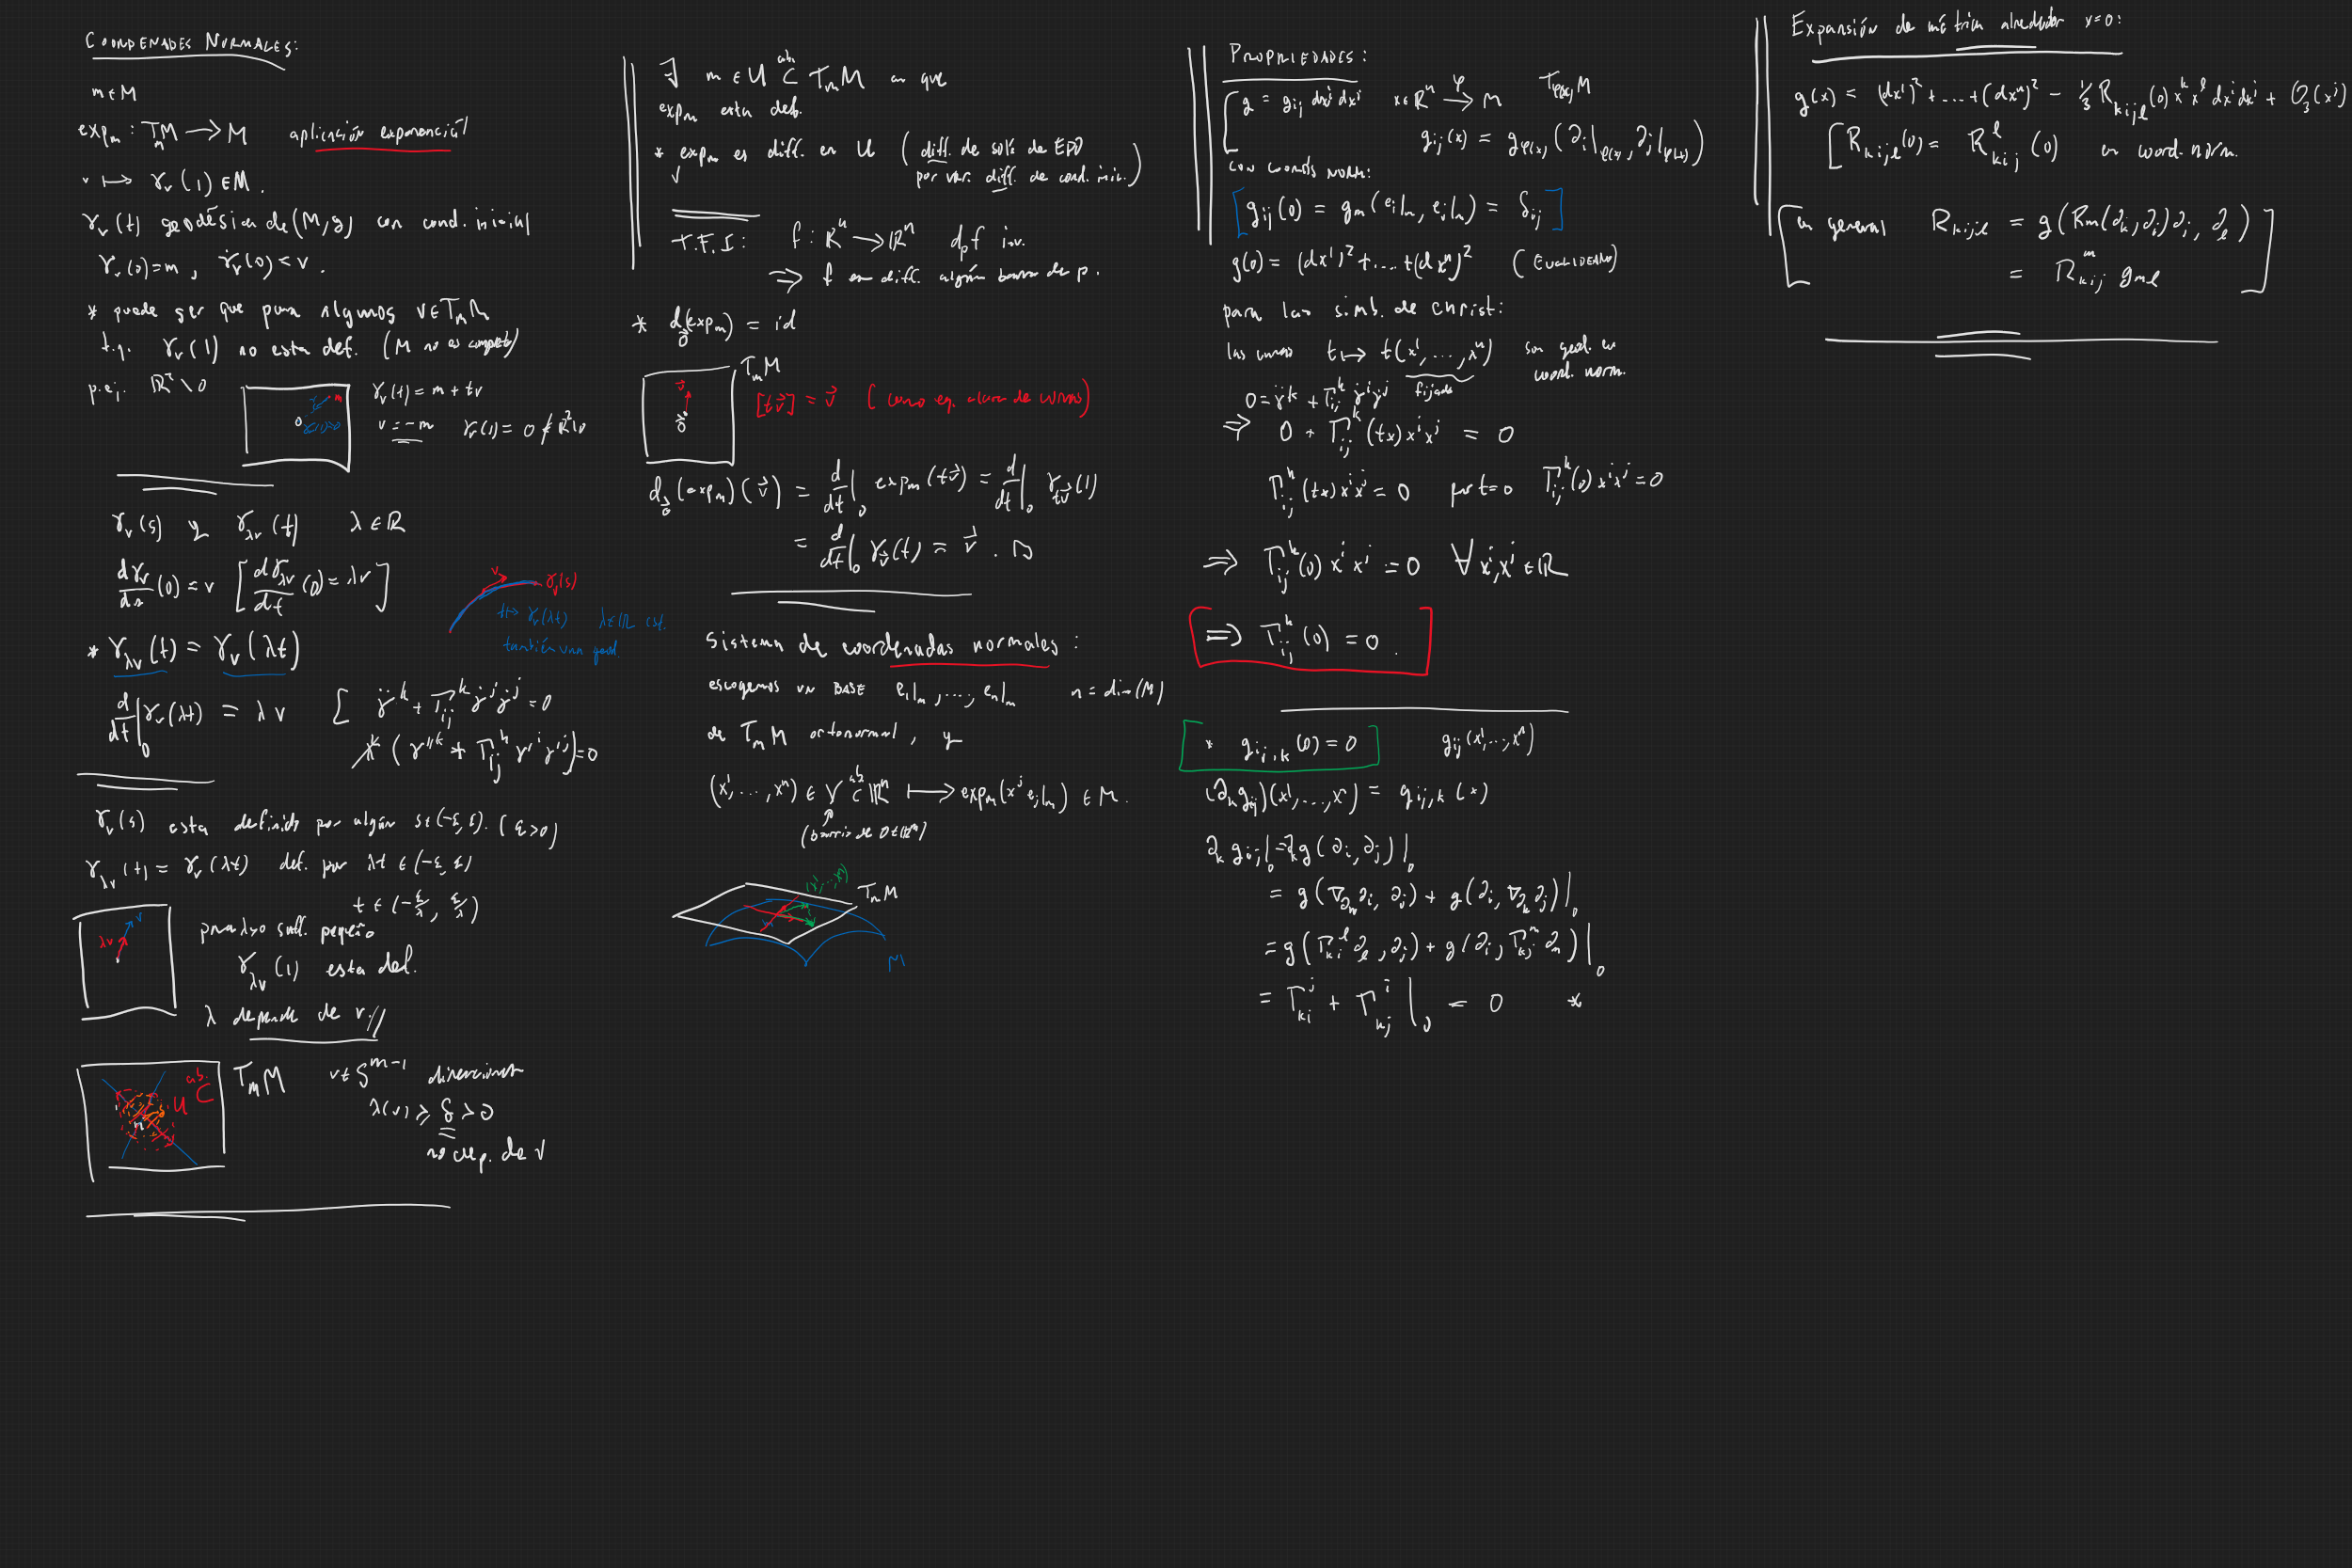 COORDENADES NORMALES:
m ∈ M
exp_m : T_m M → M aplicación exponencial
v ↦ γ_v(1) ∈ M.
γ_v(t) geodésica de (M, g) con cond. inicial
γ_v(0) = m, γ̇_v(0) = v.
* puede ser que para algunos v ∈ T_m M
t.q. γ_v(1) no esta def. (M no es completa)
p.ej. ℝ² \ 0
0
m
γ_v(t) = m + tv
v = -m γ_v(1) = 0 ∉ ℝ² \ 0
γ_v(s) y γ_{λv}(t) λ ∈ ℝ
dγ_v/ds (0) = v [dγ_{λv}/dt (0) = λv]
v γ_v(s)
t ↦ γ_v(λt) λ ∈ ℝ cst.
también una geod.
* γ_{λv}(t) = γ_v(λt)
d/dt|_0 γ_v(λt) = λv [ γ̈^k + Γ_{ij}^k γ̇^i γ̇^j = 0
λ² (γ''^k + Γ_{ij}^k γ'^i γ'^j) = 0
γ_v(s) esta definido por algún s ∈ (-ε, ε). (ε > 0)
γ_{λv}(t) = γ_v(λt) def. par λt ∈ (-ε, ε)
t ∈ (-ε/λ, ε/λ)
v
λv
para λ>0 suff. pequeño
γ_{λv}(1) esta def.
λ depende de v.//
U ab. ⊂ T_m M v ∈ S^{m-1} direcciones
m
λ(v) ≥ δ > 0
no dep. de v
∃ m ∈ U ab. ⊂ T_m M en que
exp_m esta def.
* exp_m es diff. en U (diff. de sols de EDO
por var. diff. de cond. inic.)
T.F.I: f : ℝⁿ → ℝⁿ d_p f inv.
⇒ f es diff. algún barrio de p.
* d_0⃗(exp_m) = id
T_m M
v⃗
0⃗
[tv⃗] = v⃗ (como eq. clase de curvas)
d_0⃗(exp_m)(v⃗) = d/dt|_0 exp_m(tv⃗) = d/dt|_0 γ_{tv⃗}(1)
= d/dt|_0 γ_v⃗(t) = v⃗.
Sistema de coordenadas normales:
escogemos un BASE e_1|_m, ..., e_n|_m n = dim(M)
de T_m M ortonormal, y
(x¹, ..., xⁿ) ∈ V ab. ⊂ ℝⁿ ⟼ exp_m(x^j e_j|_m) ∈ M.
(barrio de 0 ∈ ℝⁿ)
(x¹, ..., xⁿ)
T_m M
M
PROPRIEDADES:
g = g_{ij} dx^i dx^j x ∈ ℝⁿ φ→ M T_{φ(x)}M
g_{ij}(x) = g_{φ(x)}(∂_i|_{φ(x)}, ∂_j|_{φ(x)})
con coords norm:
[g_{ij}(0) = g_m(e_i|_m, e_j|_m) = δ_{ij}]
g(0) = (dx¹)² + .... + (dxⁿ)² (EUCLIDEANO)
para las simb. de Christ:
las curvas t ↦ t(x¹, ..., xⁿ) son geod. en
fijado coord. norm.
0 = γ̈^k + Γ_{ij}^k γ̇^i γ̇^j
⇒ 0 + Γ_{ij}^k(tx) x^i x^j = 0
Γ_{ij}^k(tx) x^i x^j = 0 por t=0 Γ_{ij}^k(0) x^i x^j = 0
⇒ Γ_{ij}^k(0) x^i x^j = 0 ∀ x^i, x^j ∈ ℝ
⇒ Γ_{ij}^k(0) = 0.
* g_{ij,k}(0) = 0 g_{ij}(x¹, ..., xⁿ)
(∂_k g_{ij})(x¹, ..., xⁿ) = g_{ij,k}(x)
∂_k g_{ij}|_0 = ∂_k g(∂_i, ∂_j)|_0
= g(∇_{∂_k} ∂_i, ∂_j) + g(∂_i, ∇_{∂_k} ∂_j)|_0
= g(Γ_{ki}^l ∂_l, ∂_j) + g(∂_i, Γ_{kj}^n ∂_n)|_0
= Γ_{ki}^j + Γ_{kj}^i|_0 = 0 *
Expansión de métrica alrededor x=0:
g(x) = (dx¹)² + ... + (dxⁿ)² - 1/3 R_{kijl}(0) x^k x^l dx^i dx^j + O_3(x^j)
[R_{kijl}(0) = R_{kij}^l(0) en coord. norm.
[en general R_{kijl} = g(Rm(∂_k, ∂_i)∂_j, ∂_l)
= R_{kij}^m g_{ml}]